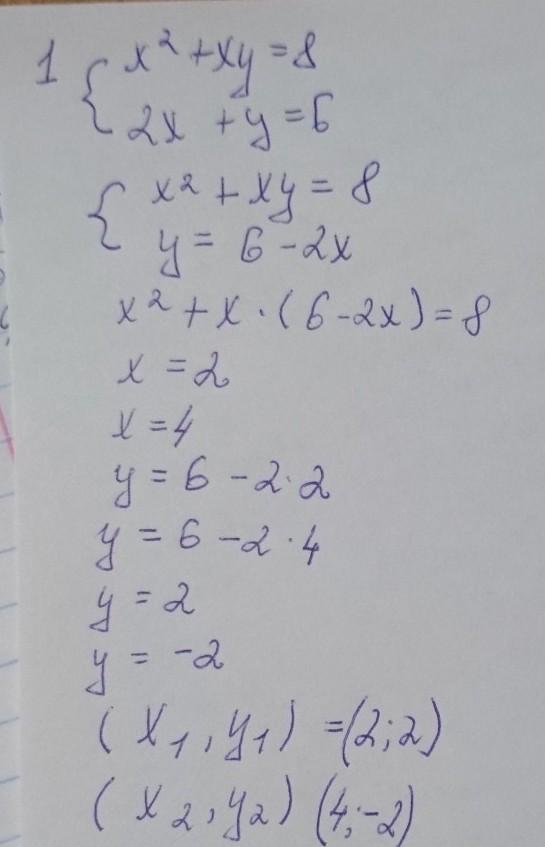 1 { x² + xy = 8
2x + y = 6
{ x² + xy = 8
y = 6 - 2x
x² + x · (6 - 2x) = 8
x = 2
x = 4
y = 6 - 2 · 2
y = 6 - 2 · 4
y = 2
y = -2
(x₁, y₁) = (2; 2)
(x₂, y₂) (4; -2)